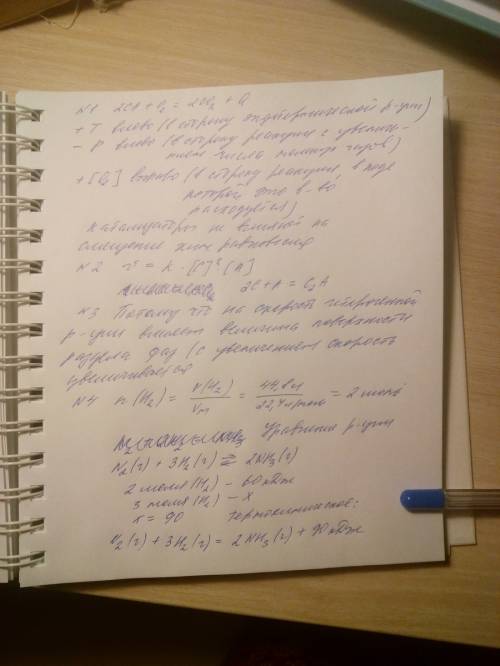 N1 2CO + O₂ = 2CO₂ + Q
+ T влево (в сторону эндотермической р-ции)
- P влево (в сторону реакции с увеличе-
нием числа молекул газов)
+ [O₂] вправо (в сторону реакции, в ходе
которой это в-во
расходуется)
Катализаторы не влияют на
смещение хим равновесия
N2 v = k · [C]² · [A]
2C + A = C₂A
N3 Потому что на скорость гетерогенной
р-ции влияет величина поверхности
раздела фаз (с увеличением скорость
увеличивается
N4 n(H₂) = V(H₂)/Vm = 44,8 л/22,4 л/моль = 2 моль
Уравнение р-ции
N₂(г) + 3H₂(г) ⇄ 2NH₃(г)
2 моля (H₂) - 60 кДж
3 моля (H₂) - x
x = 90 термохимическое:
N₂(г) + 3H₂(г) = 2NH₃(г) + 90 кДж